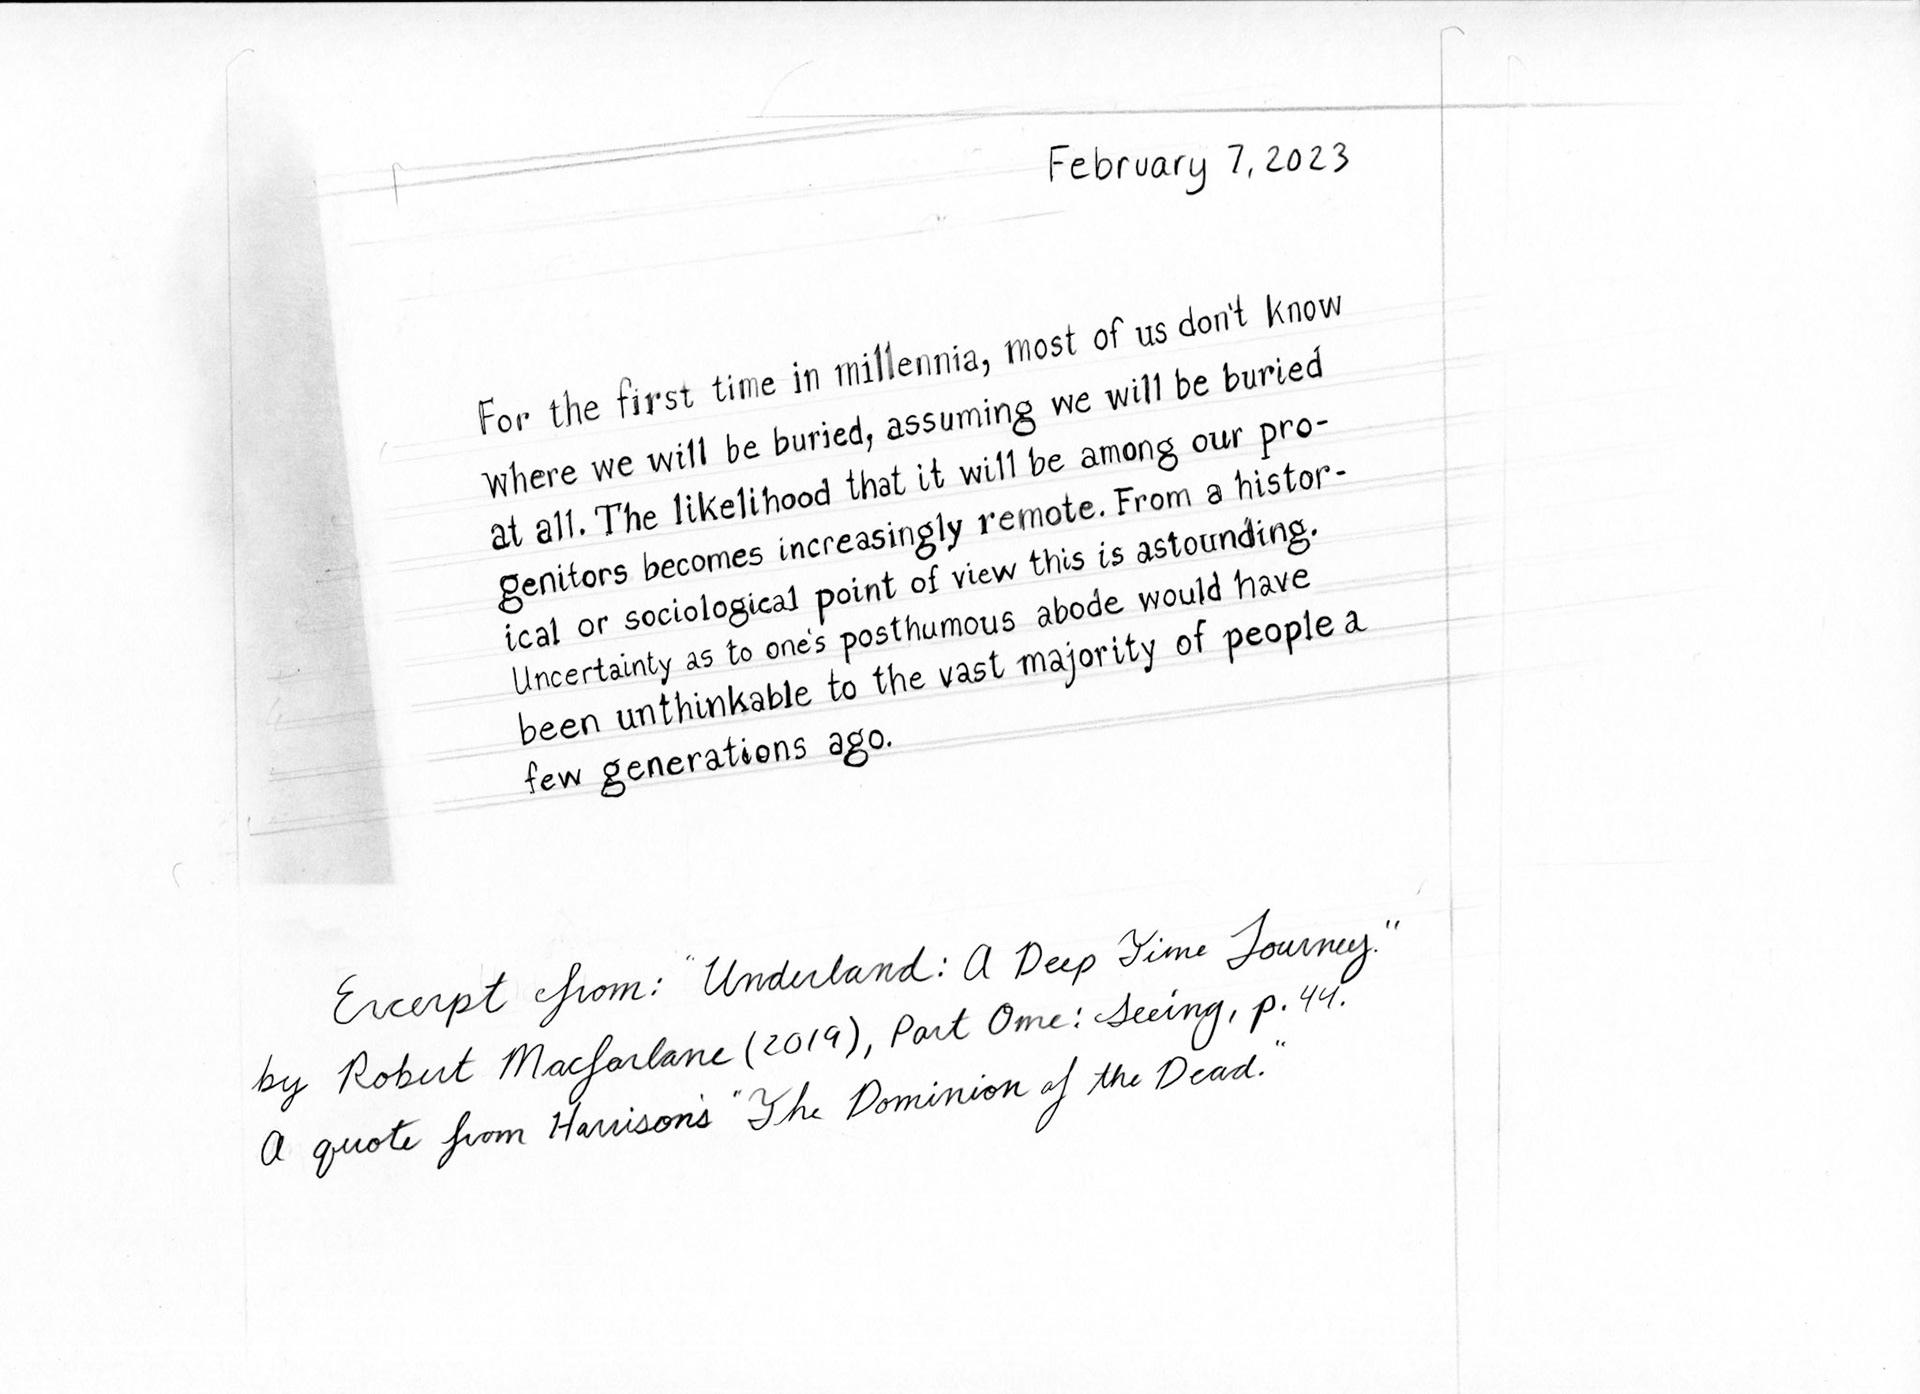 February 7, 2023
For the first time in millennia, most of us don't know
where we will be buried, assuming we will be buried
at all. The likelihood that it will be among our pro-
genitors becomes increasingly remote. From a histor-
ical or sociological point of view this is astounding.
Uncertainty as to one's posthumous abode would have
been unthinkable to the vast majority of people a
few generations ago.
Excerpt from: "Underland: A Deep Time Journey."
by Robert Macfarlane (2019), Part One: Seeing, p. 44.
A quote from Harrison's "The Dominion of the Dead."